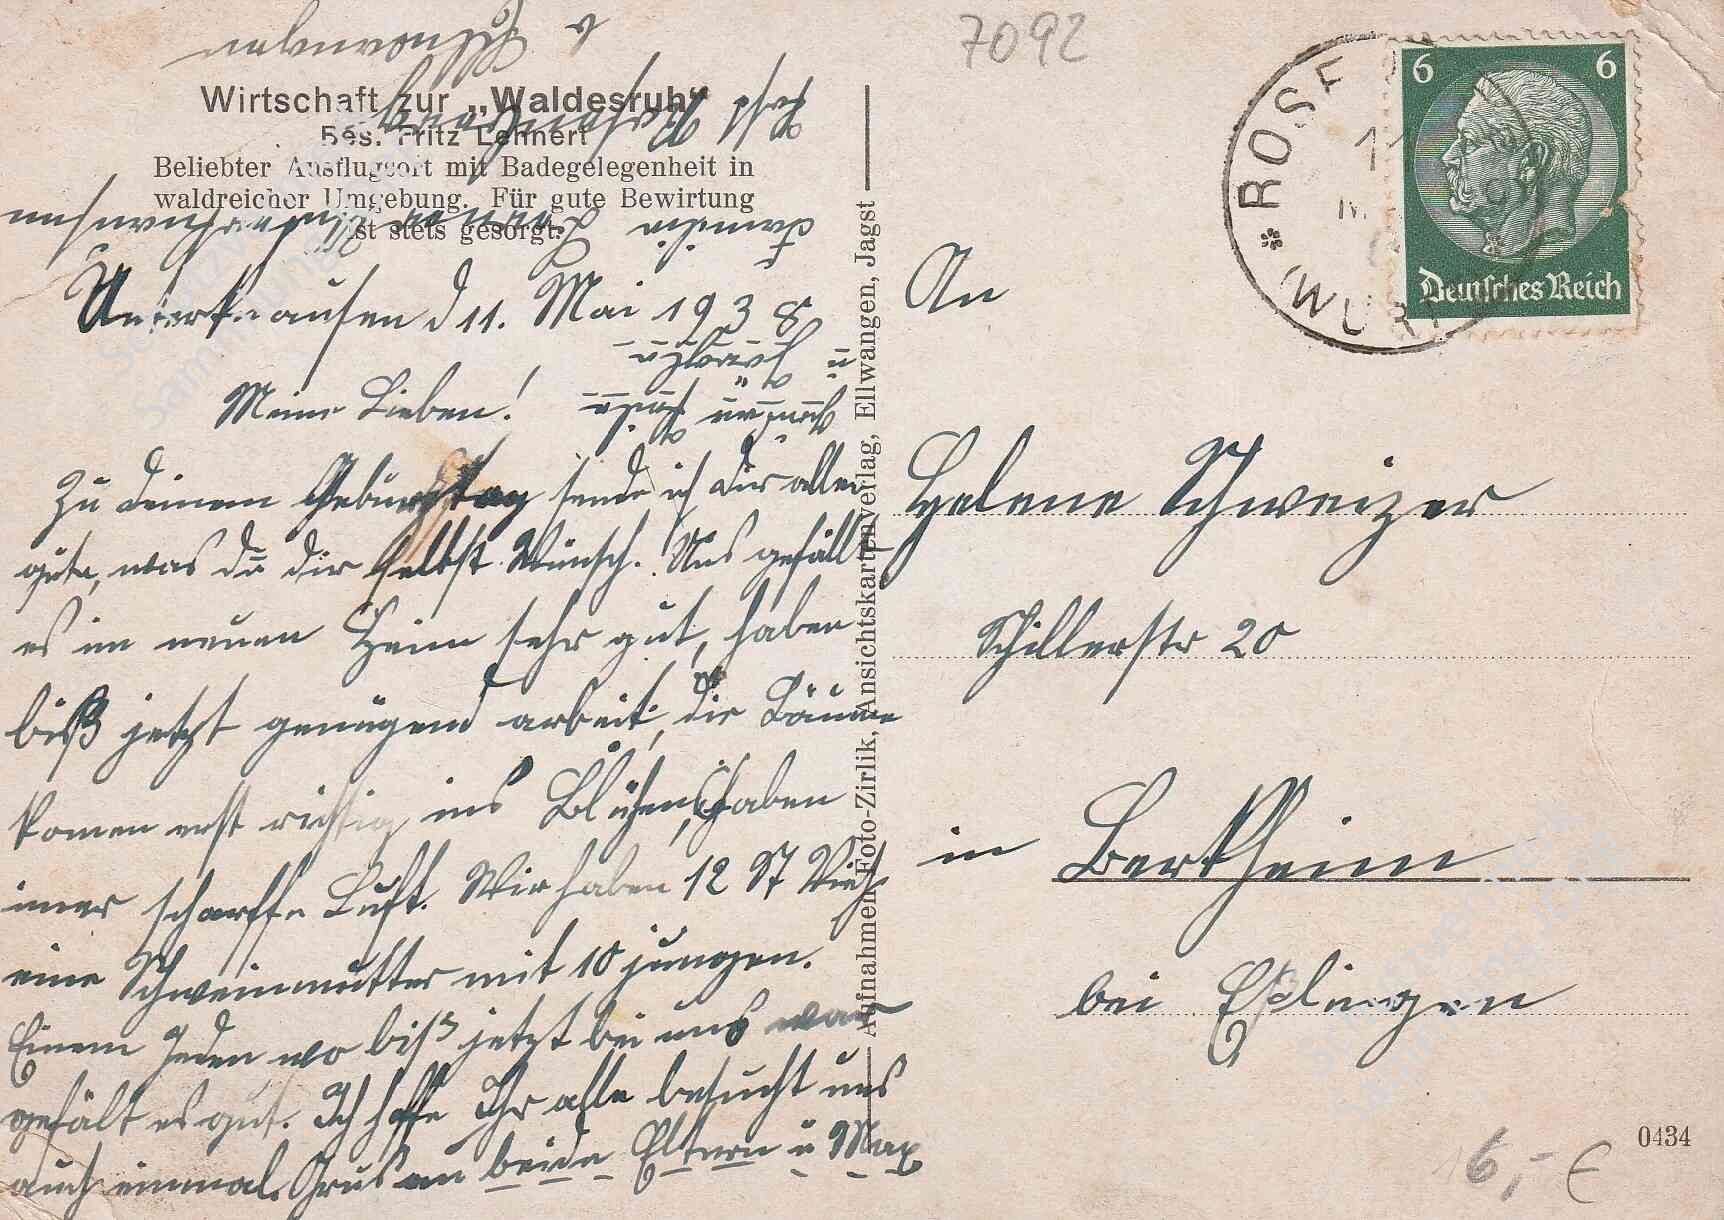 7092
Wirtschaft zur „Waldesruh“
Bes. Fritz Lehnert
Beliebter Ausflugsort mit Badegelegenheit in
waldreicher Umgebung. Für gute Bewirtung
ist stets gesorgt.
d 11. Mai 1938
Meine Lieben!
Zu deinem Geburtstag sende ich dir alles
gute, was du dir selbst Wünsch. Uns gefällt
es im neuen Heim sehr gut, haben
biß jetzt genügend arbeit, die Bäume
komen erst richtig ins Blühen, haben
imer scharffe Luft. Wir haben 12 St Vieh
eine Schweinmutter mit 10 jungen.
Einem Jeden wo biß jetzt bei uns war
gefält es gut. Ich hoffe Ihr alle besucht uns
auch einmal. Grus an beide Eltern u Max
Aufnahmen Foto-Zirlik, Ansichtskartenverlag, Ellwangen, Jagst
ROSE
(WÜRT
6 6
Deutsches Reich
An
Helene Schweizer
Schillerstr 20
in Berkheim
bei Eßlingen
0434
16,- €